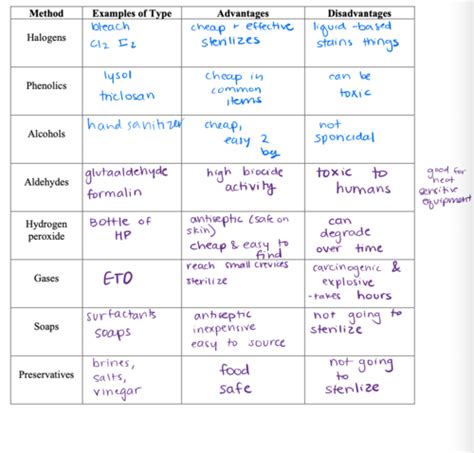 Method Examples of Type Advantages Disadvantages
Halogens
bleach
Cl2 I2
cheap + effective
sterilizes
liquid-based
stains things
Phenolics
lysol
triclosan
cheap in
common
items
can be
toxic
Alcohols
hand sanitizer
cheap,
easy 2
buy
not
sporicidal
Aldehydes
glutaaldehyde
formalin
high biocide
activity
toxic to
humans
good for
heat
sensitive
equipment
Hydrogen
peroxide
Bottle of
HP
antiseptic (safe on
skin)
cheap & easy to
find
can
degrade
over time
Gases
ETO
reach small crevices
sterilize
carcinogenic &
explosive
-takes hours
Soaps
surfactants
soaps
antiseptic
inexpensive
easy to source
not going to
sterilize
Preservatives
brines,
salts,
vinegar
food
safe
not going
to
sterilize